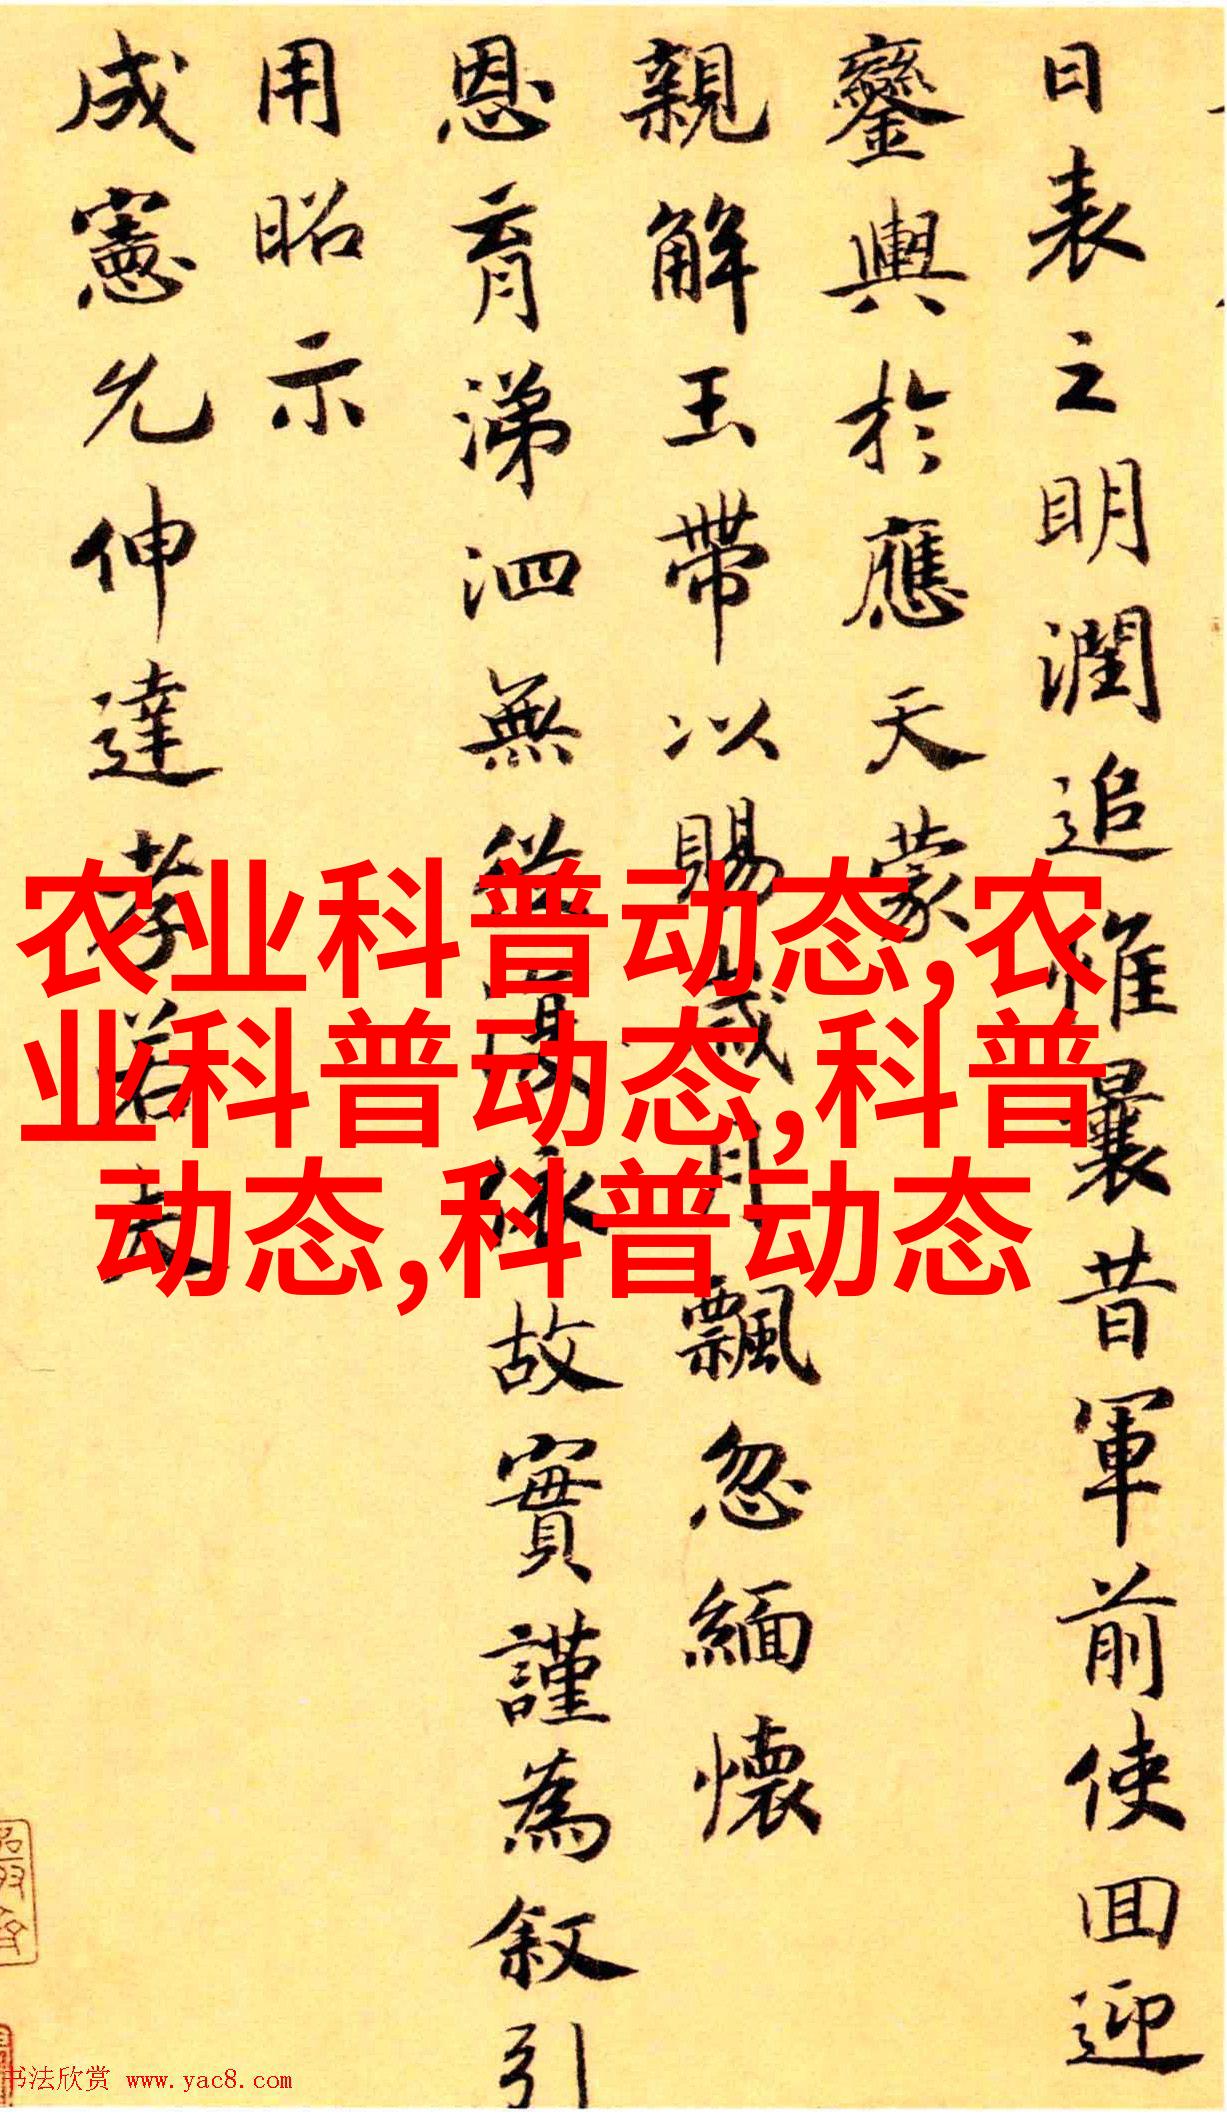 日表之明潤追惟曩昔軍前使回迎
鑾輿於應天蒙
親解玉帶以賜歲月飄忽緬懷
恩育涕泗無從故實謹為叙引
用昭示
成憲允伸達孝若夫
农业科普动态,农
业科普动态,科普
动态,科普动态
书法欣赏 www.yac8.com